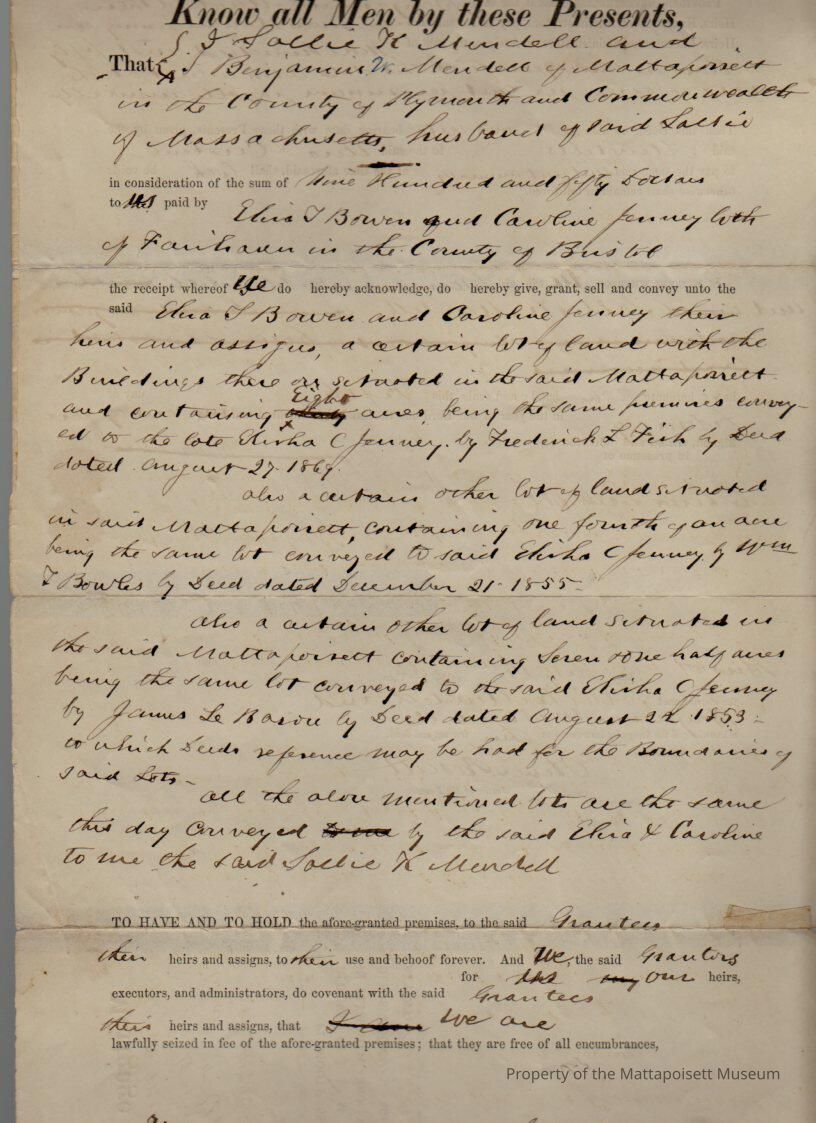 Know all Men by these Presents,
I Sallie K Mendell and
That I Benjamin W. Mendell of Mattapoisett
in the County of Plymouth and Commonwealth
of Massachusetts, husband of said Sallie
in consideration of the sum of Nine Hundred and fifty Dollars
to us paid by
Eliza T Bowen and Caroline Jenney both
of Fairhaven in the County of Bristol
the receipt whereof We do hereby acknowledge, do hereby give, grant, sell and convey unto the
said Eliza T Bowen and Caroline Jenney their
heirs and assigns, a certain lot of land with the
Buildings there on situated in the said Mattapoisett
Eight
and containing acres, being the same premises convey-
ed to the late Elisha C Jenney, by Frederick L Fish by Deed
dated August 27. 1869.
also a certain other lot of land situated
in said Mattapoisett, containing one fourth of an acre
being the same lot conveyed to said Elisha C Jenney by Wm
T Bowles by Deed dated December 21 1855-
also a certain other lot of land situated in
the said Mattapoisett containing Seven & one half acres
being the same lot conveyed to the said Elisha C Jenney
by James Le Baron by Deed dated August 22 1853-
to which Deeds reference may be had for the Boundaries of
said Lots-
all the above mentioned lots are the same
this day conveyed to me by the said Eliza & Caroline
to me the said Sallie K Mendell
TO HAVE AND TO HOLD the afore-granted premises, to the said Grantees
their heirs and assigns, to their use and behoof forever. And We, the said Grantors
for us my our heirs,
executors, and administrators, do covenant with the said Grantees
their heirs and assigns, that I am We are
lawfully seized in fee of the afore-granted premises; that they are free of all encumbrances,
Property of the Mattapoisett Museum